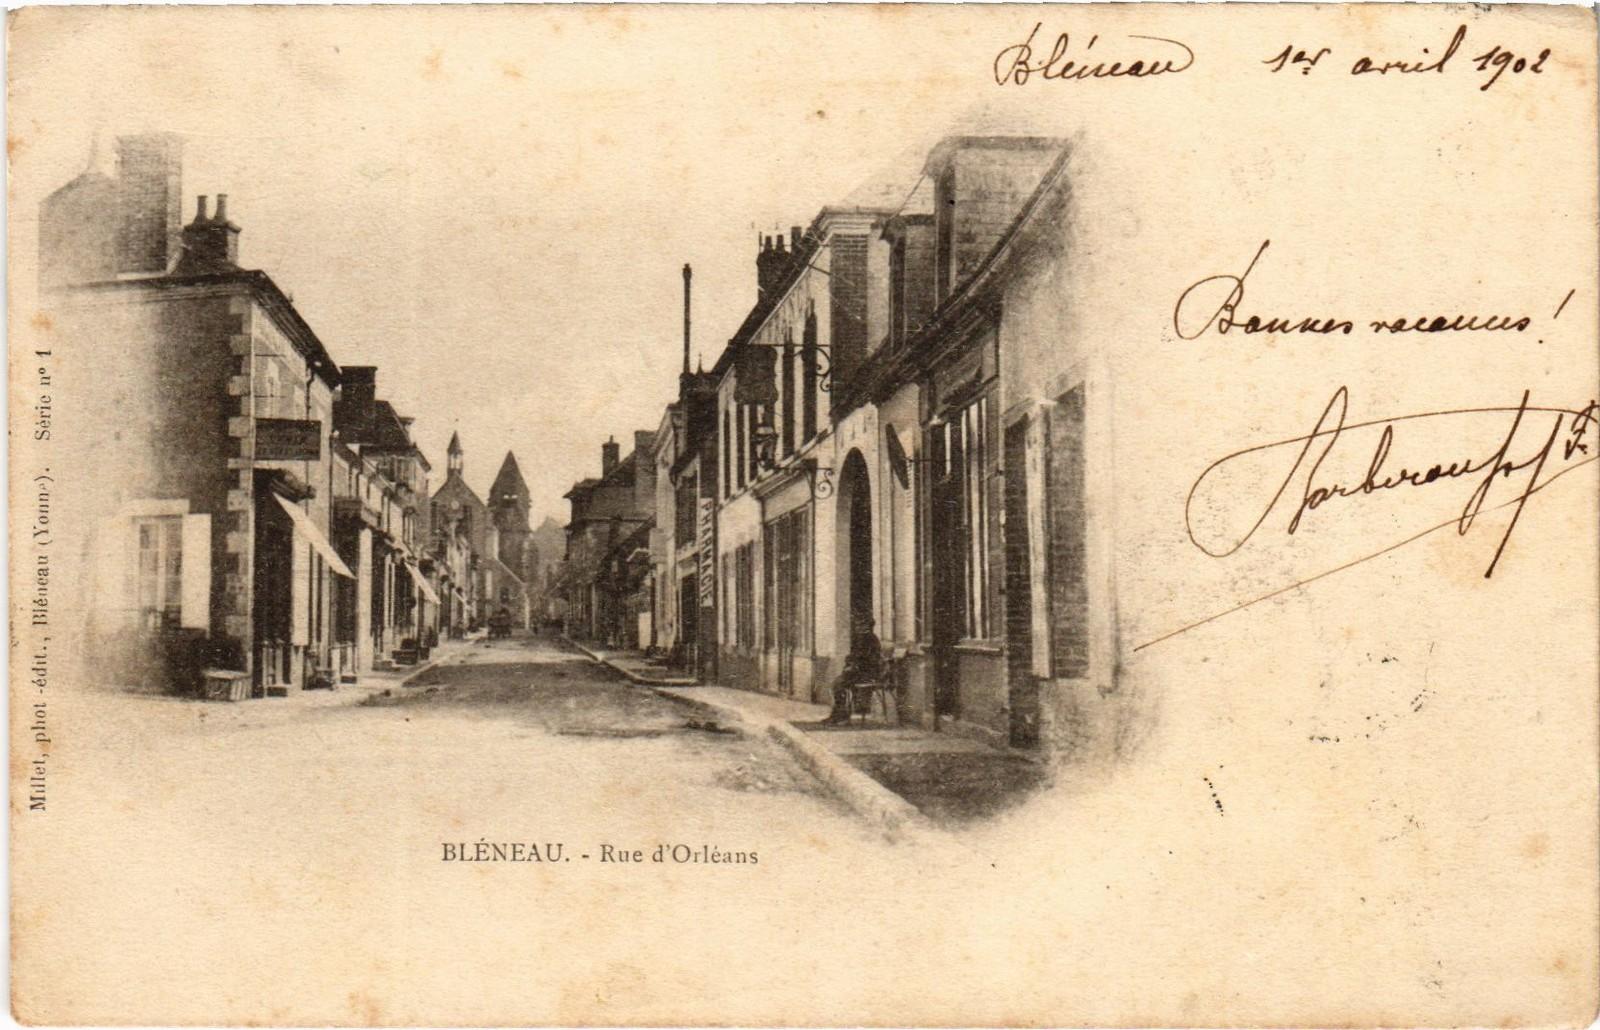 Bléneau 1er avril 1902
Bonnes vacances!
Millet, phot-édit., Bléneau (Yonne). Série nº 1
PHARMACIE
BLÉNEAU. - Rue d'Orléans